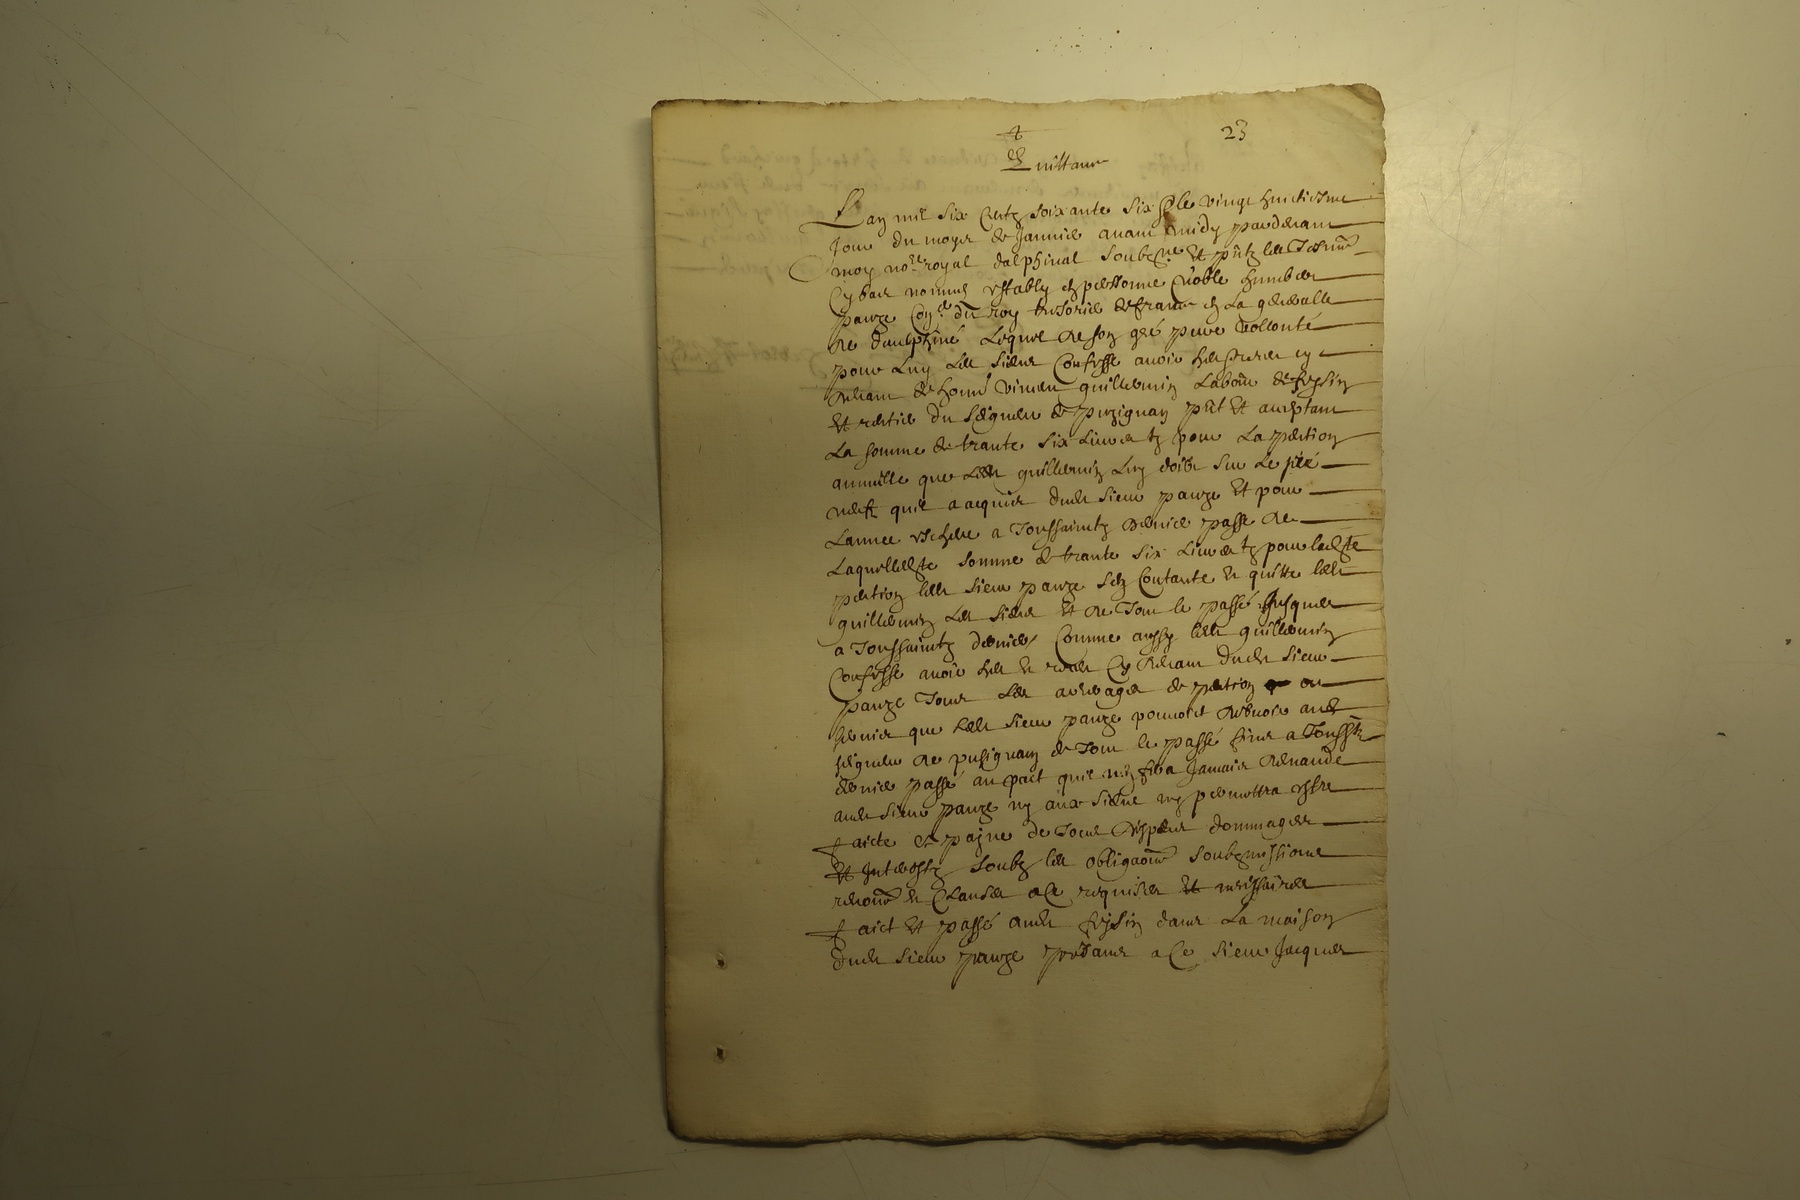 23
Quittance
Lan mil six centz soixante six & le vingt huictiesme
Jour du moys de Janvier avant midy pardevant
moy no.re royal dalphinal soubz.ne et pntz les tesm
Cy bas nommes estably en personne Noble humbert
pauze Con.er du roy tresorier de france en La generalle
de dauphiné Lequel de son gré pure vollonté
pour Luy Les siens Confesse avoir heu
de hon vincen guillermin Labour de feysin
et rentier du seigneur de puzignan pnt et acceptant
La somme de trante six Livres tz pour La pention
annuelle que Ledt guillermin Luy doibt sur Le
quil a acquis dudt sieur pauze et pour
Lannee escheue a Toussaintz dernier passé de
Laquelle somme de trante six Livres tz pour ladte
pention ledt sieur pauze sen Contante et quitte ledt
guillermin Les siens et de Tout le passé Jusques
a Toussaintz dernier Comme aussy ledt guillermin
Confesse avoir heu et receu Cy devant dudt sieur
pauze Tous Les arreages de pention ou
que Ledt sieur pauze pouvoict debvoir aud
seigneur de pusignan de Tout le passé a Toussts
dernier passé au pact quil nen sera Jamais demandé
audt sieur pauze ny aux siens ny permettra estre
faicte a payne de Tous despens dommages
et Interestz soubz les obligaons soubzmissions
et Clauses a Ce requises et necessaires
faict et passé audt feysin dans La maison
dudt sieur pauze presans a Ce sieur Jacques